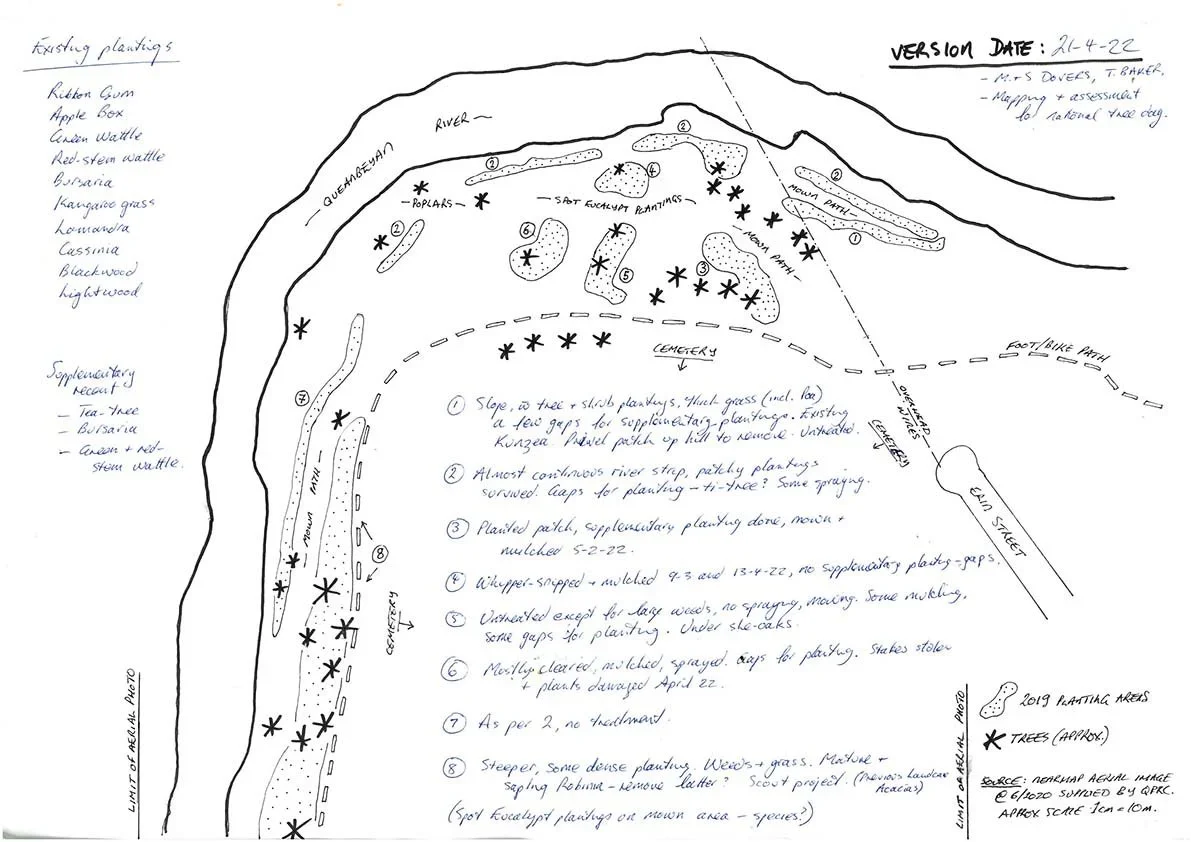 Existing plantings
Ribbon Gum
Apple Box
Green Wattle
Red-stem wattle
Bursaria
Kangaroo grass
Lomandra
Cassinia
Blackwood
Lightwood
Supplementary
recent
- Tea-tree
- Bursaria
- Green + red-
stem wattle.
VERSION DATE: 21-4-22
- M.+S DOVERS, T. BAKER.
- Mapping + assessment
for national tree day.
QUEANBEYAN RIVER
2
2
4
2
POPLARS
SPOT EUCALYPT PLANTINGS
MOWN PATH
1
2
6
5
3
MOWN PATH
CEMETERY
FOOT/BIKE PATH
OVERHEAD WIRES
CEMETERY
ERIN STREET
7
MOWN PATH
8
CEMETERY
LIMIT OF AERIAL PHOTO
1 Slope, tree + shrub plantings, thick grass (incl. Poa)
a few gaps for supplementary plantings. Existing
Kunzea. Privet patch up hill to remove. Untreated.
2 Almost continuous river strip, patchy plantings
survived. Gaps for planting - ti-tree? Some spraying.
3 Planted patch, supplementary planting done, mown +
mulched 5-2-22.
4 Whipper-snipped + mulched 9-3 and 13-4-22, no supplementary planting-gaps.
5 Untreated except for large weeds, no spraying, mowing. Some mulching.
Some gaps for planting. Under she-oaks.
6 Mostly cleared, mulched, sprayed. Gaps for planting. Stakes stolen
+ plants damaged April 22.
7 As per 2, no treatment.
8 Steeper, some dense planting. Weeds + grass. Mature +
sapling Robinia - remove latter? Scout project. (Previous Landcare
Acacias)
(Spot Eucalypt plantings on mown area - species?)
LIMIT OF AERIAL PHOTO
2019 PLANTING AREAS
TREES (APPROX.)
SOURCE: NEARMAP AERIAL IMAGE
@ 6/2020 SUPPLIED BY QPRC.
APPROX SCALE 1cm = 10m.